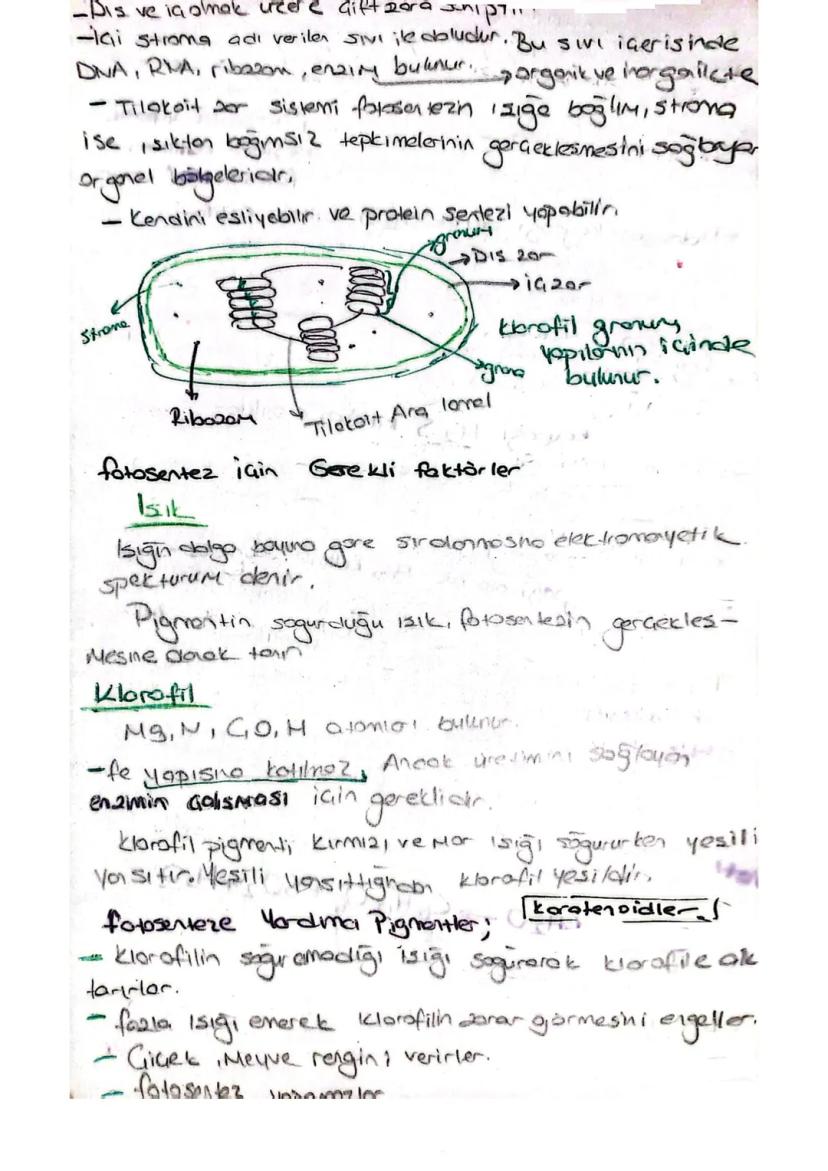 -Dış ve iç olmak üzere çift zara
-İçi stroma adı verilen sıvı ile doludur. Bu sıvı içerisinde
DNA, RNA, ribozom, enzim bulunur. → organik ve inorganik
- Tilakoit zar sistemi fotosentezin ışığa bağlım, stroma
ise ışıktan bağımsız tepkimelerinin gerçekleşmesini sağlayan
organel bölgeleridir.
- Kendini eşliyebilir ve protein sentezi yapabilir.
granum
→Dış zar
→iç zar
Stroma
klorofil granum
yapılarının içinde
bulunur.
grana
Ribozom
Tilakoit Ara lamel
fotosentez için Gerekli faktörler
Işık
Işığın dalga boyuna göre sıralanmasına elektromayetik
spekturum denir.
Pigmentin soğurduğu ışık, fotosentezin gerçekleş-
mesine olanak tanır
Klorofil
Mg, N, C, O, H atomları bulunur.
-fe yapısına katılmaz, Ancak üretimini sağlayan
enzimin çalışması için gereklidir.
Klorofil pigmenti kırmızı ve mor ışığı soğururken yeşili
yansıtır. Yeşili yansıttığından klorofil yeşildir.
fotosenteze Yardımcı Pigmentler; Karotenoidler
- Klorofilin soğuramadığı ışığı soğurarak klorofile ak
tarırlar.
- fazla ışığı emerek klorofilin zarar görmesini engeller.
- Çiçek, Meyve rengini verirler.
- fotosentez